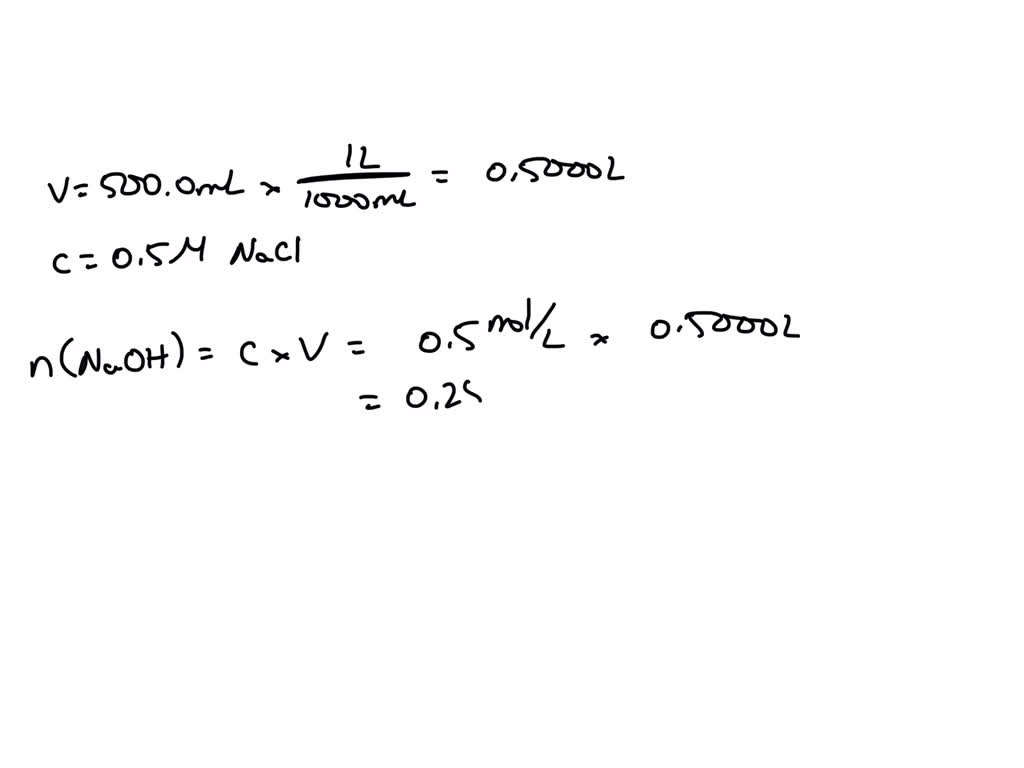 V = 500.0mL × 1L/1000mL = 0.5000L
c = 0.5M NaCl
n(NaOH) = c × V = 0.5 mol/L × 0.5000L
= 0.25